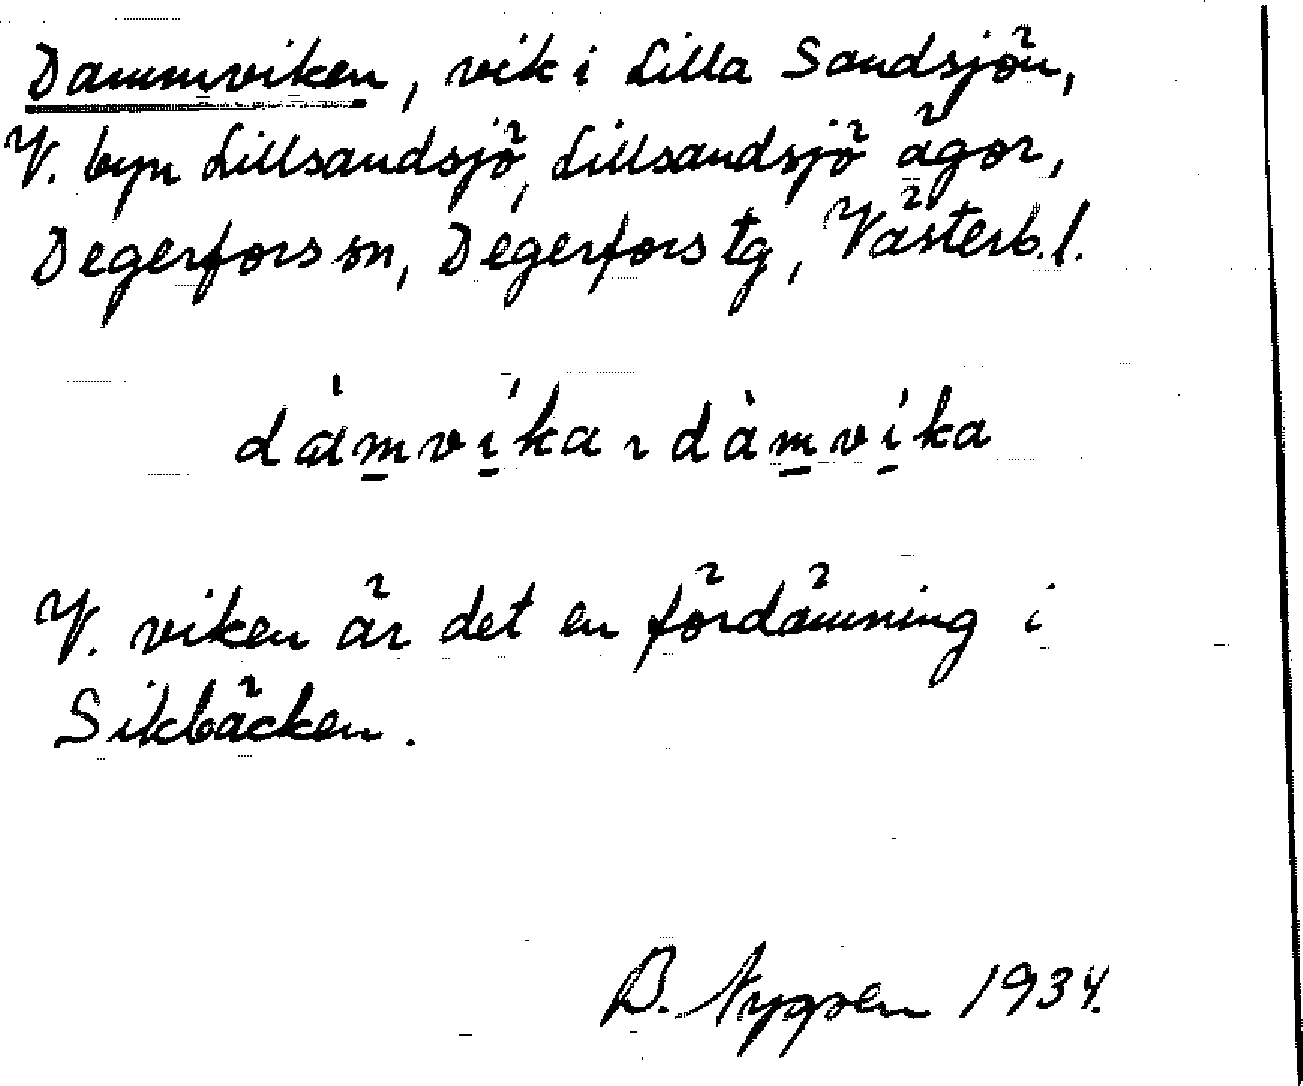 Dammviken, vik i Lilla Sandsjön,
V. byn Lillsandsjö, Lillsandsjö ägor,
Degerfors sn, Degerfors tg, Västerb. l.
dàmvíka ~ dàmvíka
V. viken är det en fördämning i
Sikbäcken.
B. 1934.